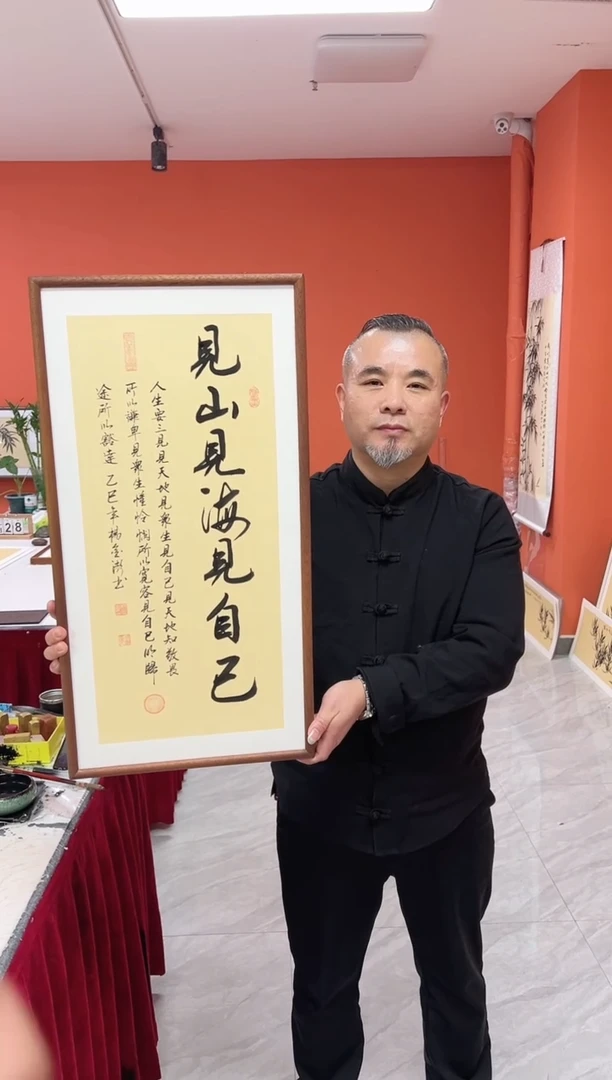 見山見海見自己
人生要三見見天地見衆生見自己見天地知敬畏
所以謙卑見衆生懂憐憫所以寬容見自己明歸
途所以豁達 乙巳年楊金
28